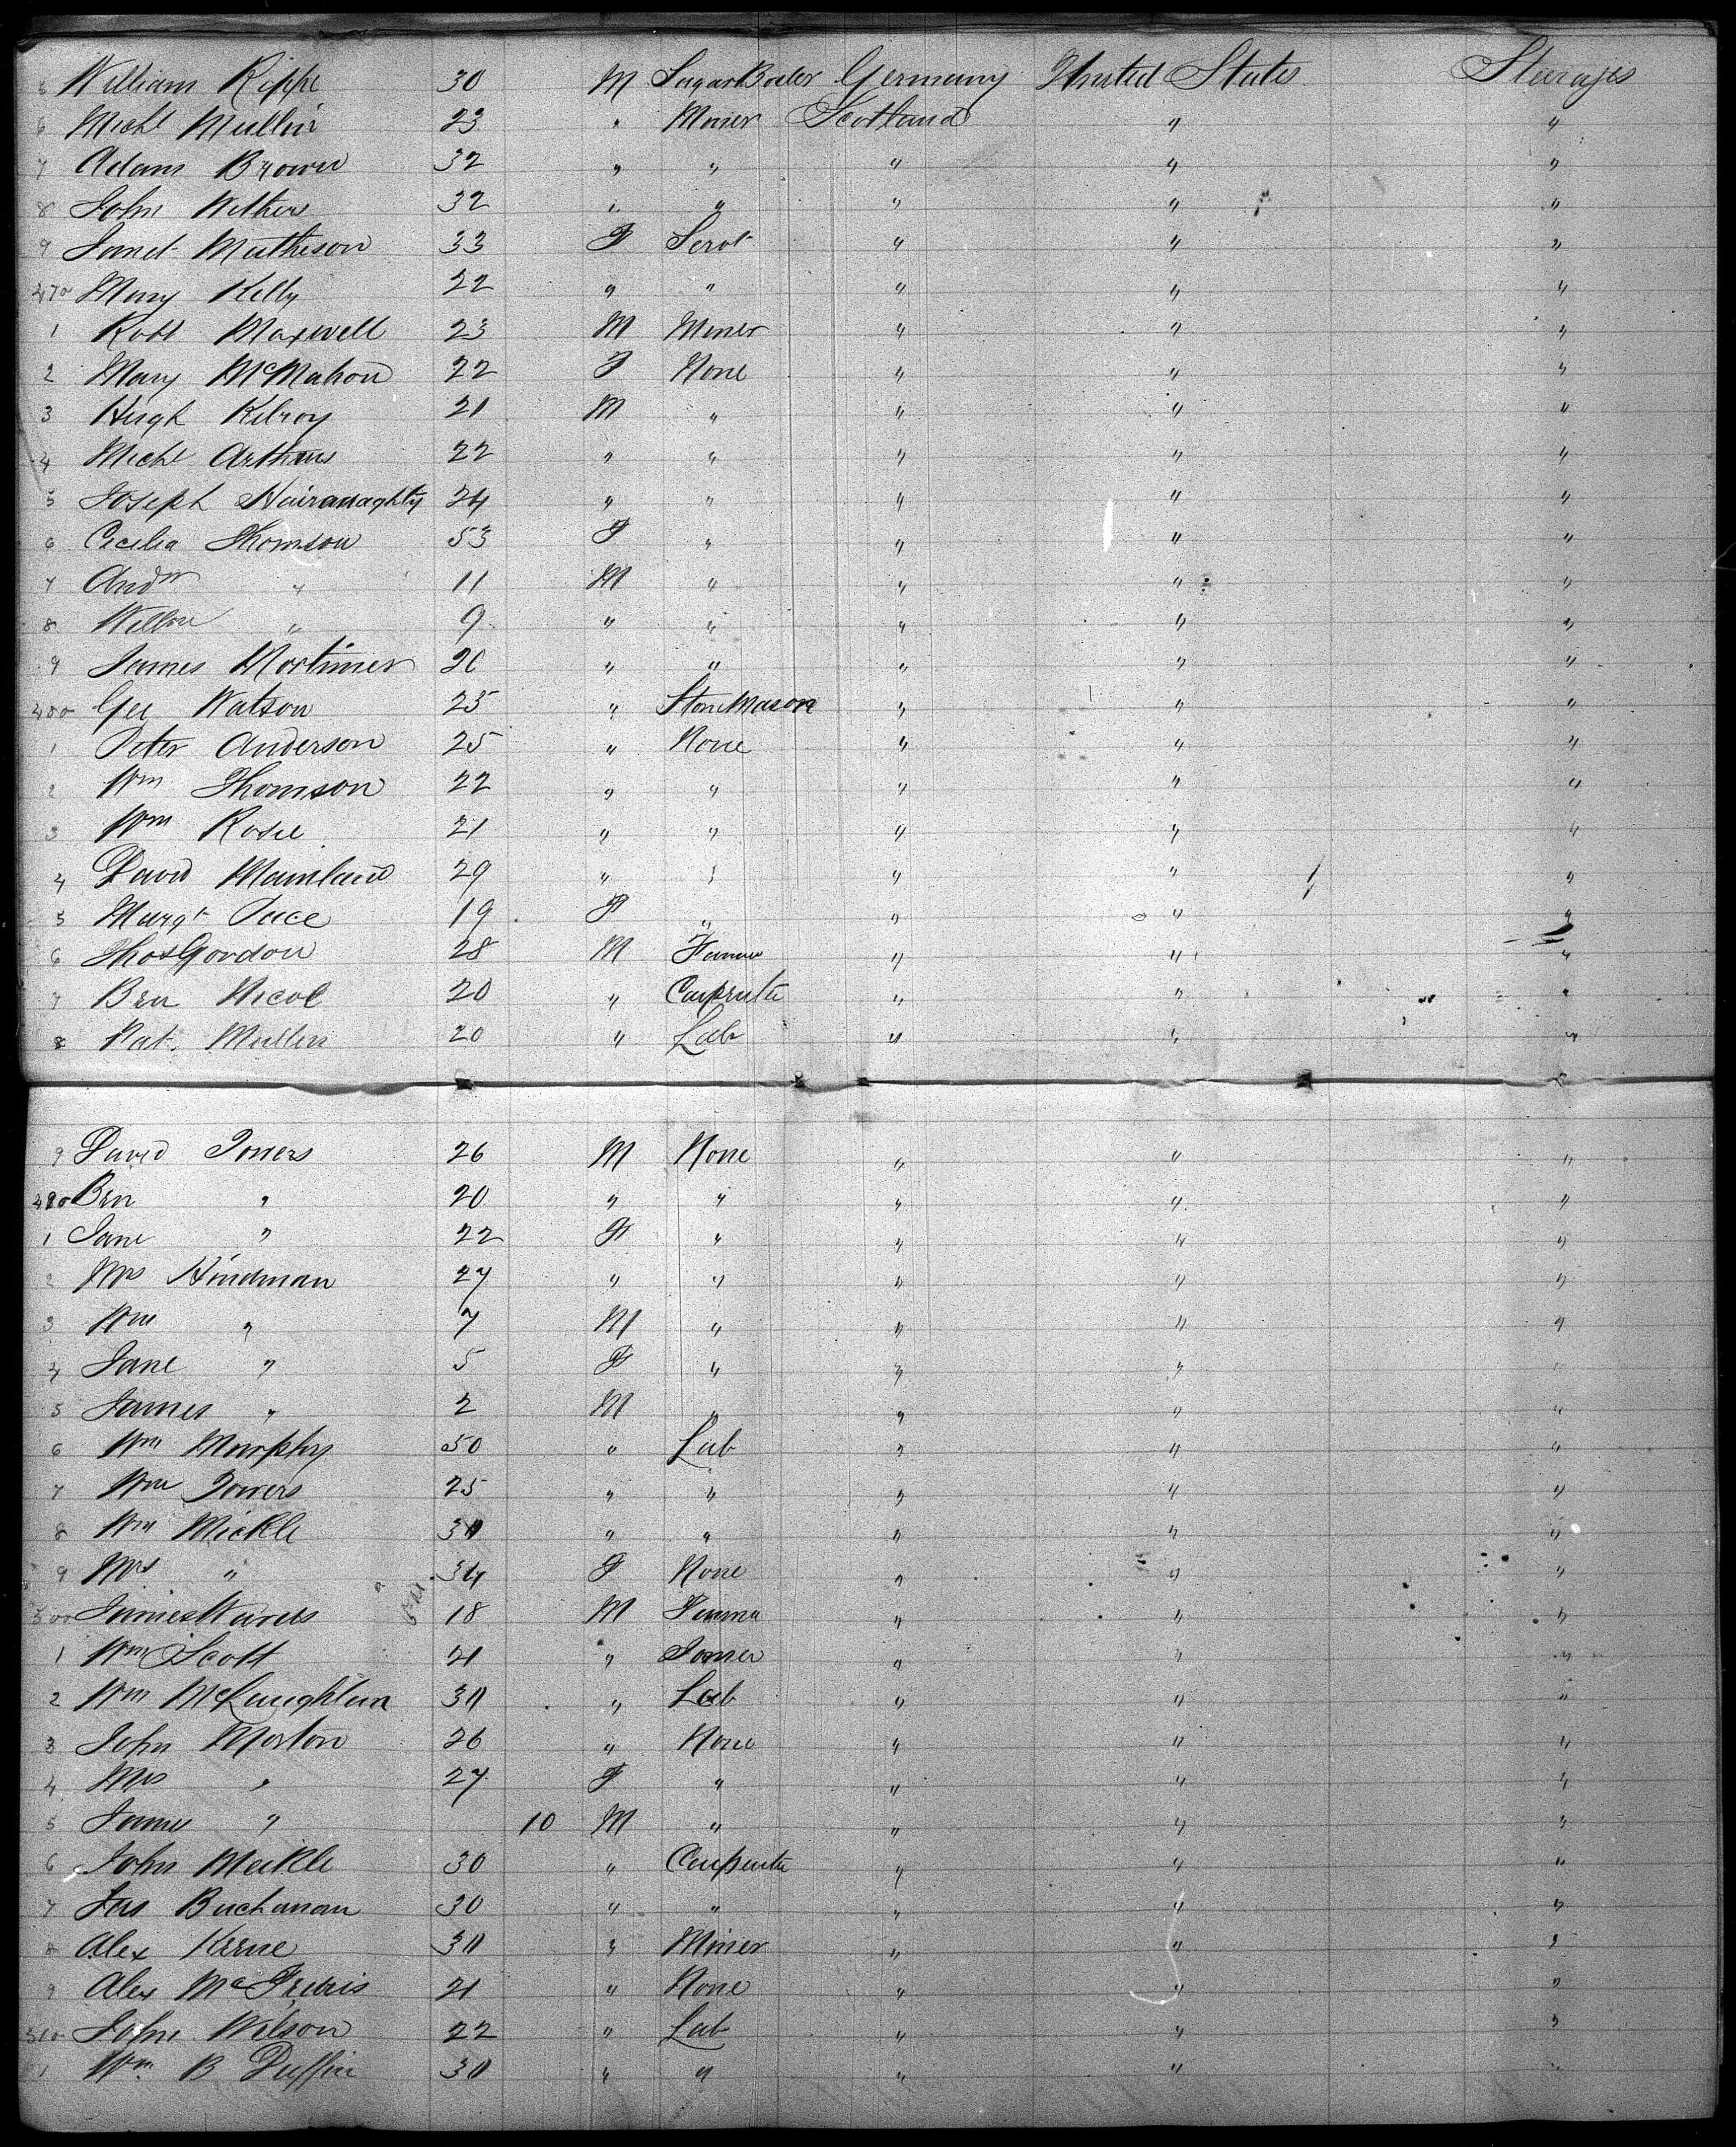 5 William Rippe 30 M Sugar Boiler Germany United States Steerage
6 Michl Mullin 23 " Miner Scotland " "
7 Adam Brown 32 " " " " "
8 John Withers 32 " " " " "
9 Janet Mathieson 33 F Servt " " "
470 Mary Kelly 22 " " " " "
1 Robt Maxwell 23 M Miner " " "
2 Mary McMahon 22 F None " " "
3 Hugh Kilroy 21 M " " " "
4 Michl Arthurs 22 " " " " "
5 Joseph 24 " " " " "
6 Cecilia Thomson 53 F " " " "
7 Andw " 11 M " " " "
8 " 9 " " " " "
9 James Mortimer 20 " " " " "
480 Geo Watson 25 " Stone Mason " " "
1 Peter Anderson 25 " None " " "
2 Wm Thomson 22 " " " " "
3 Wm Rosie 21 " " " " "
4 David Mainland 29 " " " " "
5 Margt 19 F " " " "
6 Thos Gordon 28 M Farmer " " "
7 Ben Nicol 20 " Carpenter " " "
8 Pat. Mullin 20 " Lab " " "
9 David Towers 26 M None " " "
490 Ben " 20 " " " " "
1 Jane " 22 F " " " "
2 Mrs Hindman 27 " " " " "
3 Wm " 7 M " " " "
4 Jane " 5 F " " " "
5 James " 2 M " " " "
6 Wm Murphy 50 " Lab " " "
7 Wm Towers 25 " " " " "
8 Wm Mickle 30 " " " " "
9 Mrs " 34 F None " " "
500 James 18 M Farmer " " "
1 Wm Scott 21 " Joiner " " "
2 Wm McLaughlan 30 " Lab " " "
3 John Morton 26 " None " " "
4 Mrs " 27 F " " " "
5 James " 10 M " " " "
6 John Meikle 30 " Carpenter " " "
7 Jas Buchanan 30 " " " " "
8 Alex 30 " Miner " " "
9 Alex 21 " None " " "
510 John Wilson 22 " Lab " " "
1 Wm B Duffin 30 " " " " "